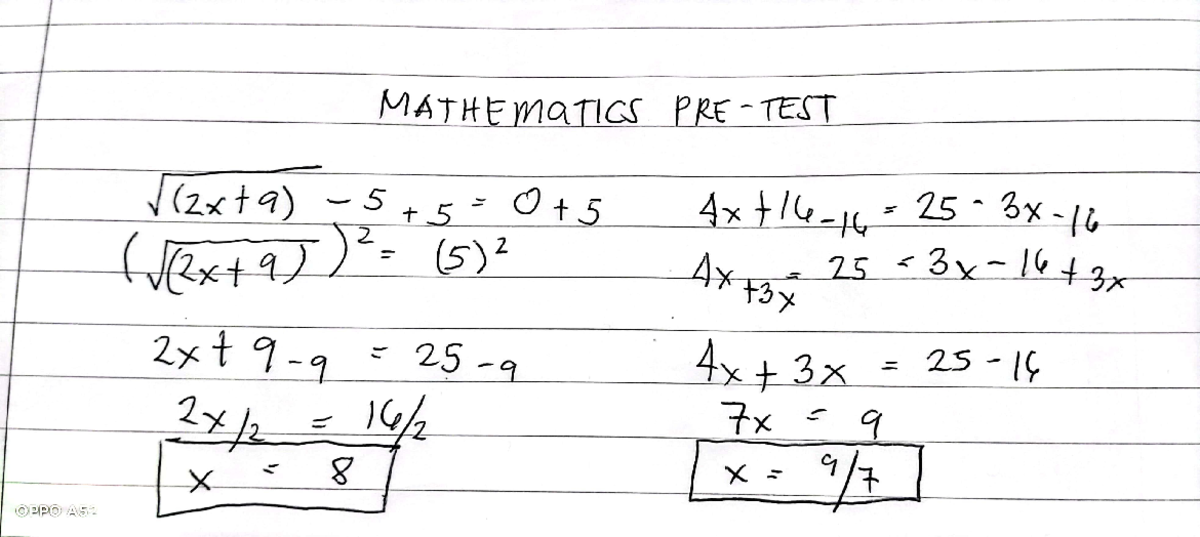 MATHEMATICS PRE-TEST
√(2x+9) - 5 + 5 = 0 + 5
(√(2x+9))² = (5)²
2x + 9 - 9 = 25 - 9
2x/2 = 16/2
x = 8
4x + 16 - 16 = 25 - 3x - 16
4x + 3x = 25 - 3x - 16 + 3x
4x + 3x = 25 - 16
7x = 9
x = 9/7
OPPO A5